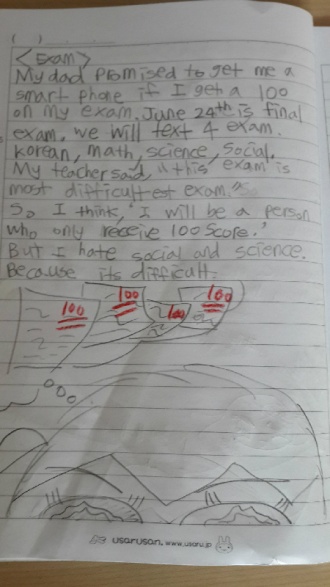 ( )
<Exam>
My dad promised to get me a
smart phone if I get a 100
on my exam. June 24th is final
exam, we will text 4 exam.
korean, math, science, social.
My teacher said, "this exam is
most difficultest exam."
So I think, 'I will be a person
who only receive 100 score.'
But I hate social and science.
Because its difficult.
100
100
100
100
usarusan. www.usaru.jp